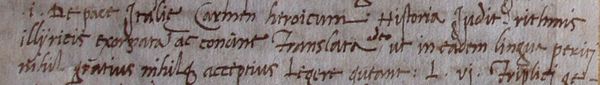 i. De pace Italie Carmen heroicum. Historia Iudit rithmis
illyricis exornata ac concine translata adeo ut in eadem lingua periti
nihil gratius nihilq acceptius legere queant: L. vi. Triplici ge-